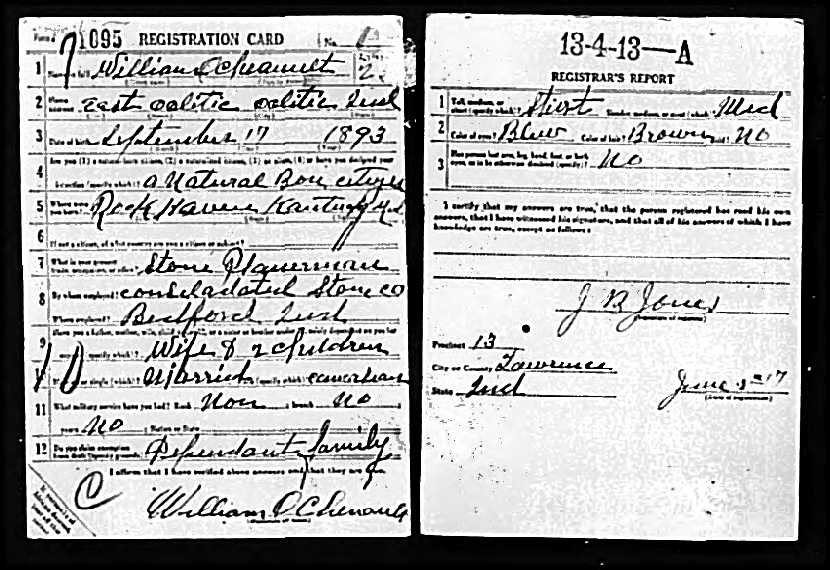 Form 1 1095 REGISTRATION CARD No.
1 Name in full William O Cheanult Age in yrs 2
2 Home address East oolitic oolitic Ind
3 Date of birth September 17 1893
Are you (1) a natural-born citizen, (2) a naturalized citizen, (3) an alien, (4) or have you declared your
4 intention (specify which)? a Natural Bon citizen
5 Where were you born? Rock Haven Kentucky
6 If not a citizen, of what country are you a citizen or subject?
7 What is your present trade, occupation, or office? Stone Planerman
8 By whom employed? consoladated Stone co
Where employed? Bedford Ind
Have you a father, mother, wife, child under 12, or a sister or brother under 12, solely dependent on you for
9 support (specify which)? Wife & 2 children
10 Married or single (which)? Married Race (specify which)? caucasian
11 What military service have you had? Rank Non ; branch No
years No ; Nation or State
12 Do you claim exemption from draft (specify grounds)? Dependant family
I affirm that I have verified above answers and that they are true.
William O Chenault
(Signature or mark)
13-4-13—A
REGISTRAR'S REPORT
1 Tall, medium, or short (specify which)? Slender, medium, or stout (which)? Med
2 Color of eyes? Blew Color of hair? Brown Bald? NO
3 Has person lost arm, leg, hand, foot, or both eyes, or is he otherwise disabled (specify)? NO
I certify that my answers are true, that the person registered has read his own
answers, that I have witnessed his signature, and that all of his answers of which I have
knowledge are true, except as follows:
J B Jones
(Signature of registrar)
Precinct 13
City or County Lawrence
State Ind June 5 17
(Date of registration)